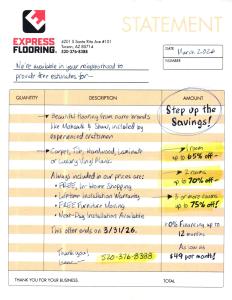 STATEMENT
EXPRESS
FLOORING
6201 S Santa Rita Ave #101
Tucson, AZ 85714
520-376-8388
DATE March 2026
NUMBER
We're available in your neighborhood to
provide free estimates for—
QUANTITY DESCRIPTION AMOUNT
Step up the
Savings!
→ Beautiful flooring from name brands
like Mohawk & Shaw, installed by
experienced craftsmen
→ Carpet, Tile, Hardwood, Laminate
or Luxury Vinyl Plank
→ 1 room
up to 65% off—
Always included in our prices are:
• FREE, In-Home Shopping
• Lifetime Installation Warranty
• FREE Furniture Moving
• Next-Day Installation Available
→ 2 rooms
up to 70% off—
→ 3 or more rooms
up to 75% off!
This offer ends on 3/31/26.
0% Financing up to
12 months
Thank you!
520-376-8388
As low as
$49 per month!
THANK YOU FOR YOUR BUSINESS.
TOTAL